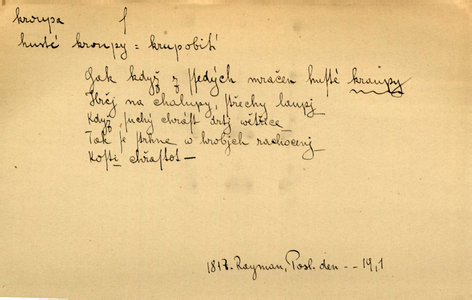 kroupa f
husté kroupy = krupobití
Gak když z ſſedých mračen huſté kraupy
na chalupy, ſtřechy laupj
Když ſuchý chráſt drtj wětřice
Tak ſe w hrobjch rachocenj
Koſti chřaſtot —
1817. Rayman, Posl. den -- 19,1